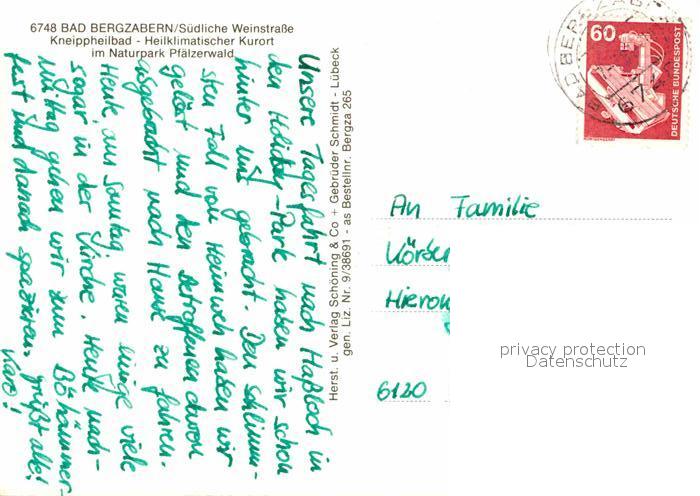 6748 BAD BERGZABERN/Südliche Weinstraße
Kneippheilbad - Heilklimatischer Kurort
im Naturpark Pfälzerwald
Unsere Tagesfahrt nach Haßloch in
den Holiday-Park haben wir schon
hinter uns gebracht. Den schlimm-
sten Fall von Heimweh haben wir
gelöst und den Betroffenen davon
abgebracht nach Hause zu fahren.
Heute, am Sonntag waren einige viele
sogar in der Kirche. Heute nach-
Mittag gehen wir zum Böhämmer-
fest und danach spazieren. grüßt alle!
Karo!
Herst. u. Verlag Schöning & Co + Gebrüder Schmidt - Lübeck
gen. Liz. Nr. 9/38691 - as Bestellnr. Bergza 265
60
DEUTSCHE BUNDESPOST
BAD BERGZAB
An Familie
Hieron
6120
privacy protection
Datenschutz